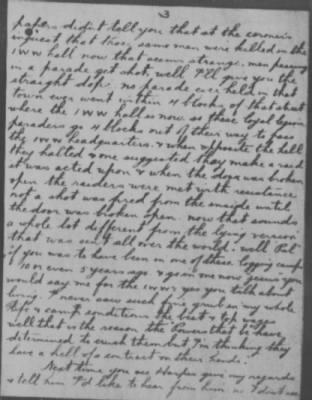 3
papers didn't tell you that at the coroner's
inquest that those same men were killed in the
I W W hall now that seems strange. men passing
in a parade get shot, well I'll give you the
straight dope, no parade ever held in that
town ever went within 4 blocks of that street
where the I W W hall is now as these loyal legion
paraders go 4 blocks out of their way to pass
the I W W headquarters. & when opposite the hall
they halted & one suggested they make a raid
it was acted upon & when the door was broken
open the raiders were met with resistance
not a shot was fired from the inside until
the door was broken open. now that sounds
a whole lot different from the lying version
that was sent all over the world. well Pal
if you was to have been in one of these logging camps
10 or even 5 years ago & go in one now you
would say me for the I W W's yes you talk about
living. I never saw such fine grub in my whole
life & camp conditions the best & top wages
well that is the reason the Powers that be have
determined to crush them but I'm thinking they
have a hell of a contract on their hands.
Next time you see Harper give my regards
& tell him I'd like to hear from him. no I don't